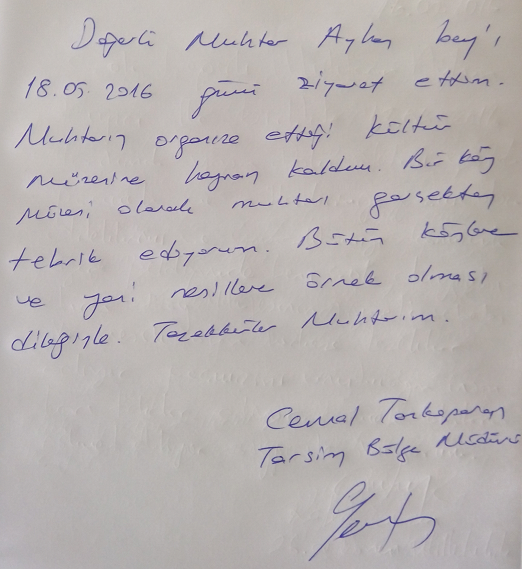 Değerli Muhtar Ayhan bey'i
18.05.2016 günü ziyaret ettim.
Muhtarın organize ettiği kültür
müzesine hayran kaldım. Bir köy
müzesi olarak muhtarı gerçekten
tebrik ediyorum. Bütün köylere
ve yeni nesillere örnek olması
dileğiyle. Teşekkürler Muhtarım.
Cemal Tozkoparan
Tarsim Bölge Müdürü